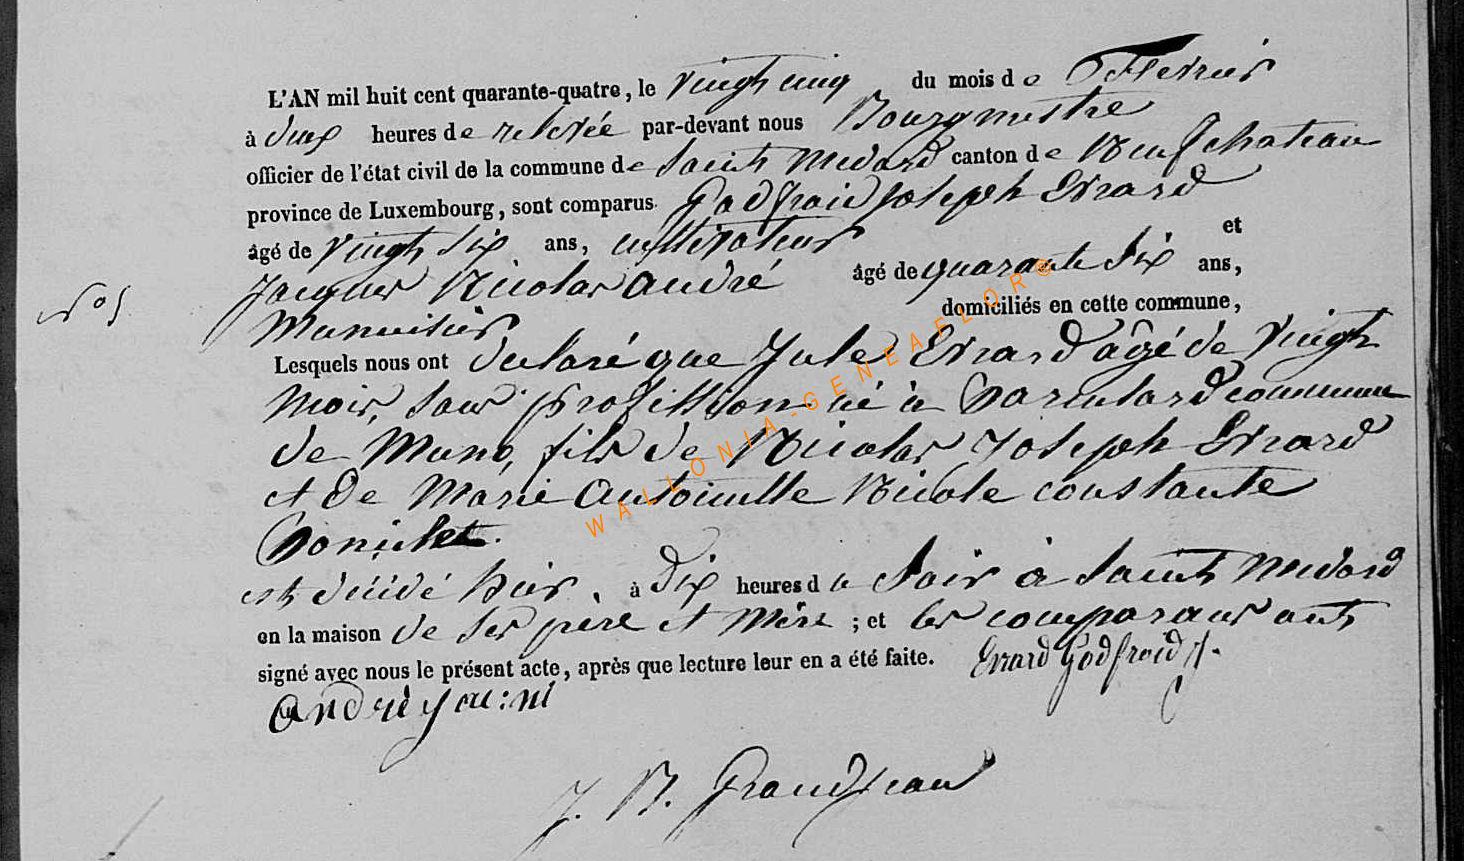 L'AN mil huit cent quarante-quatre, le vingt cinq du mois de Fevrier
à deux heures de relevée par-devant nous Bourgmestre
officier de l'état civil de la commune de Saint Medard canton de Neufchateau
province de Luxembourg, sont comparus Godfroid Joseph Evrard
âgé de vingt six ans, cultivateur et
Jacques Nicolas André âgé de quarante six ans,
Menuisier domiciliés en cette commune,
N° 5
Lesquels nous ont declaré que Jule Evrard âgé de vingt
mois, sans profession né à commune
de Muno, fils de Nicolas Joseph Evrard
et de Marie Antoinette Nicole constante
est décédé hier, à dix heures du soir à Saint Medard
en la maison de ses père et mère ; et les comparans ont
signé avec nous le présent acte, après que lecture leur en a été faite. Evrard Godfroid J.
André jac: ni
J. B. Grandjean
WALLONIA-GENEAFLOR©